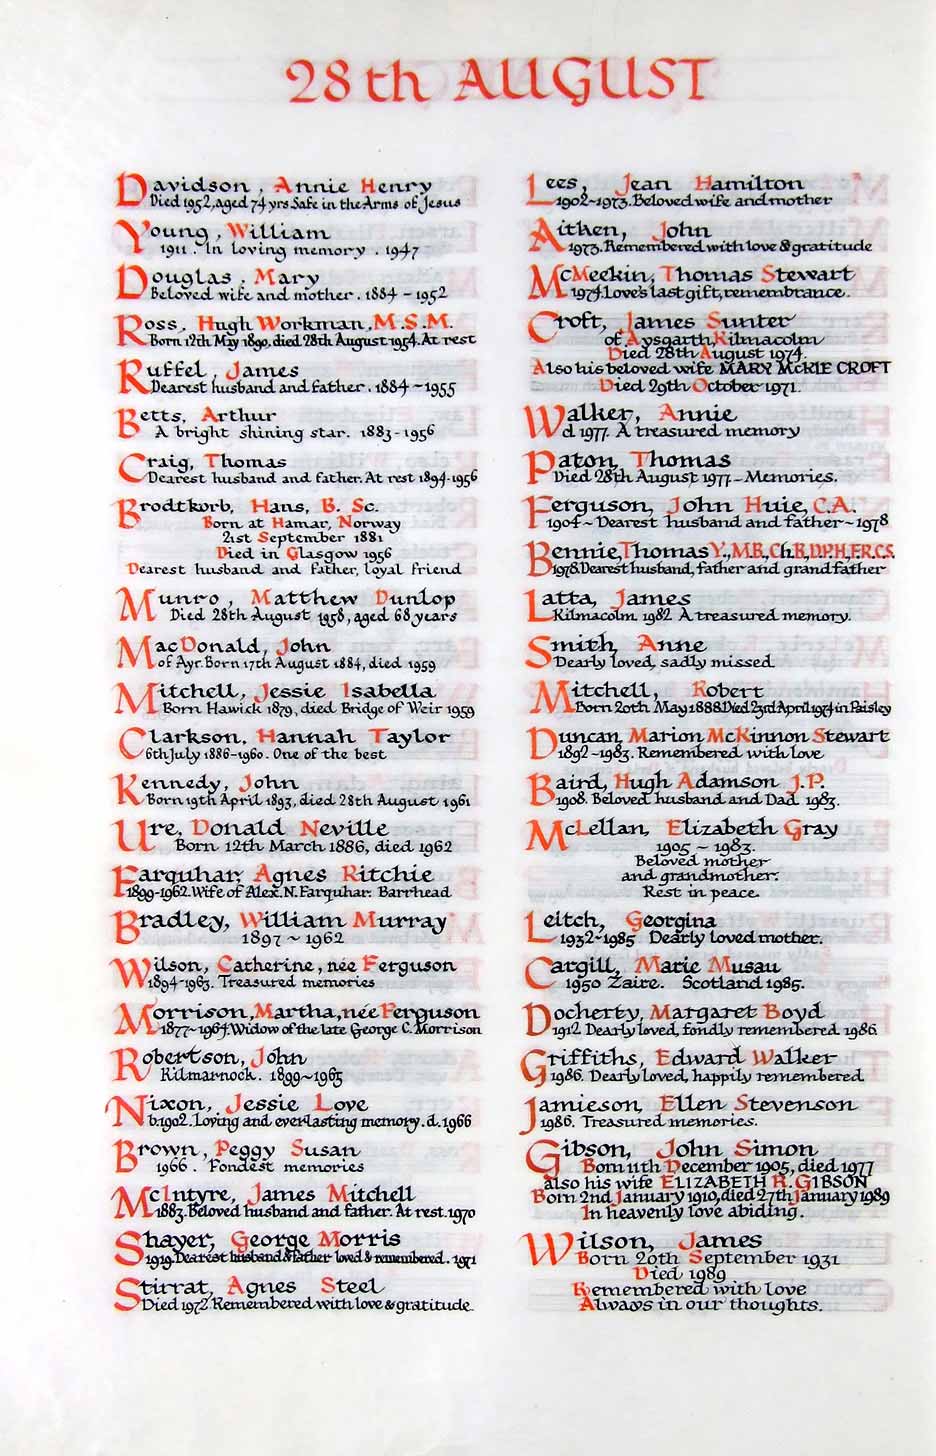 28th AUGUST
Davidson, Annie Henry
Died 1952, aged 74 yrs. Safe in the Arms of Jesus
Young, William
1911. In loving memory. 1947
Douglas, Mary
Beloved wife and mother. 1884 - 1952
Ross, Hugh Workman, M.S.M.
Born 12th May 1890, died 28th August 1954. At rest
Ruffel, James
Dearest husband and father. 1884 ~ 1955
Betts, Arthur
A bright shining star. 1883 - 1956
Craig, Thomas
Dearest husband and father. At rest 1894-1956
Brodtkorb, Hans, B. Sc.
Born at Hamar, Norway
21st September 1881
Died in Glasgow 1956
Dearest husband and father, loyal friend
Munro, Matthew Dunlop
Died 28th August 1958, aged 68 years
MacDonald, John
of Ayr. Born 17th August 1884, died 1959
Mitchell, Jessie Isabella
Born Hawick 1879, died Bridge of Weir 1959
Clarkson, Hannah Taylor
6th July 1886-1960. One of the best
Kennedy, John
Born 19th April 1893, died 28th August 1961
Ure, Donald Neville
Born 12th March 1886, died 1962
Farquhar, Agnes Ritchie
1899-1962. Wife of Alex. N. Farquhar. Barrhead
Bradley, William Murray
1897 ~ 1962
Wilson, Catherine, née Ferguson
1894-1963. Treasured memories
Morrison, Martha, née Ferguson
1877~1964. Widow of the late George C. Morrison
Robertson, John
Kilmarnock. 1899~1965
Nixon, Jessie Love
b.1902. Loving and everlasting memory. d.1966
Brown, Peggy Susan
1966. Fondest memories
McIntyre, James Mitchell
1883. Beloved husband and father. At rest. 1970
Shayer, George Morris
1919. Dearest husband & father loved & remembered. 1971
Stirrat, Agnes Steel
Died 1972. Remembered with love & gratitude.
Lees, Jean Hamilton
1902~1973. Beloved wife and mother
Aitken, John
1973. Remembered with love & gratitude
McMeekin, Thomas Stewart
1974. Love's last gift, remembrance.
Croft, James Sunter
of Aysgarth, Kilmacolm
Died 28th August 1974.
Also his beloved wife MARY McKIE CROFT
Died 29th October 1971.
Walker, Annie
d 1977. A treasured memory
Paton, Thomas
Died 28th August 1977 - Memories.
Ferguson, John Huie, C.A.
1904 ~ Dearest husband and father ~ 1978
Bennie, Thomas Y., M.B., Ch.B., D.P.H., F.R.C.S.
1978. Dearest husband, father and grandfather
Latta, James
Kilmacolm 1982. A treasured memory.
Smith, Anne
Dearly loved, sadly missed.
Mitchell, Robert
Born 20th May 1888. Died 23rd April 1974 in Paisley
Duncan, Marion McKinnon Stewart
1892 ~ 1983. Remembered with love
Baird, Hugh Adamson J.P.
1908. Beloved husband and Dad. 1983.
McLellan, Elizabeth Gray
1905 ~ 1983.
Beloved mother
and grandmother.
Rest in peace.
Leitch, Georgina
1932~1985 Dearly loved mother.
Cargill, Marie Musau
1950 Zaire. Scotland 1985.
Docherty, Margaret Boyd
1912. Dearly loved, fondly remembered 1986.
Griffiths, Edward Walker
1986. Dearly loved, happily remembered.
Jamieson, Ellen Stevenson
1986. Treasured memories.
Gibson, John Simon
Born 11th December 1905, died 1977
also his wife ELIZABETH R. GIBSON
Born 2nd January 1910, died 27th January 1989
In heavenly love abiding.
Wilson, James
Born 20th September 1931
Died 1989
Remembered with love
Always in our thoughts.